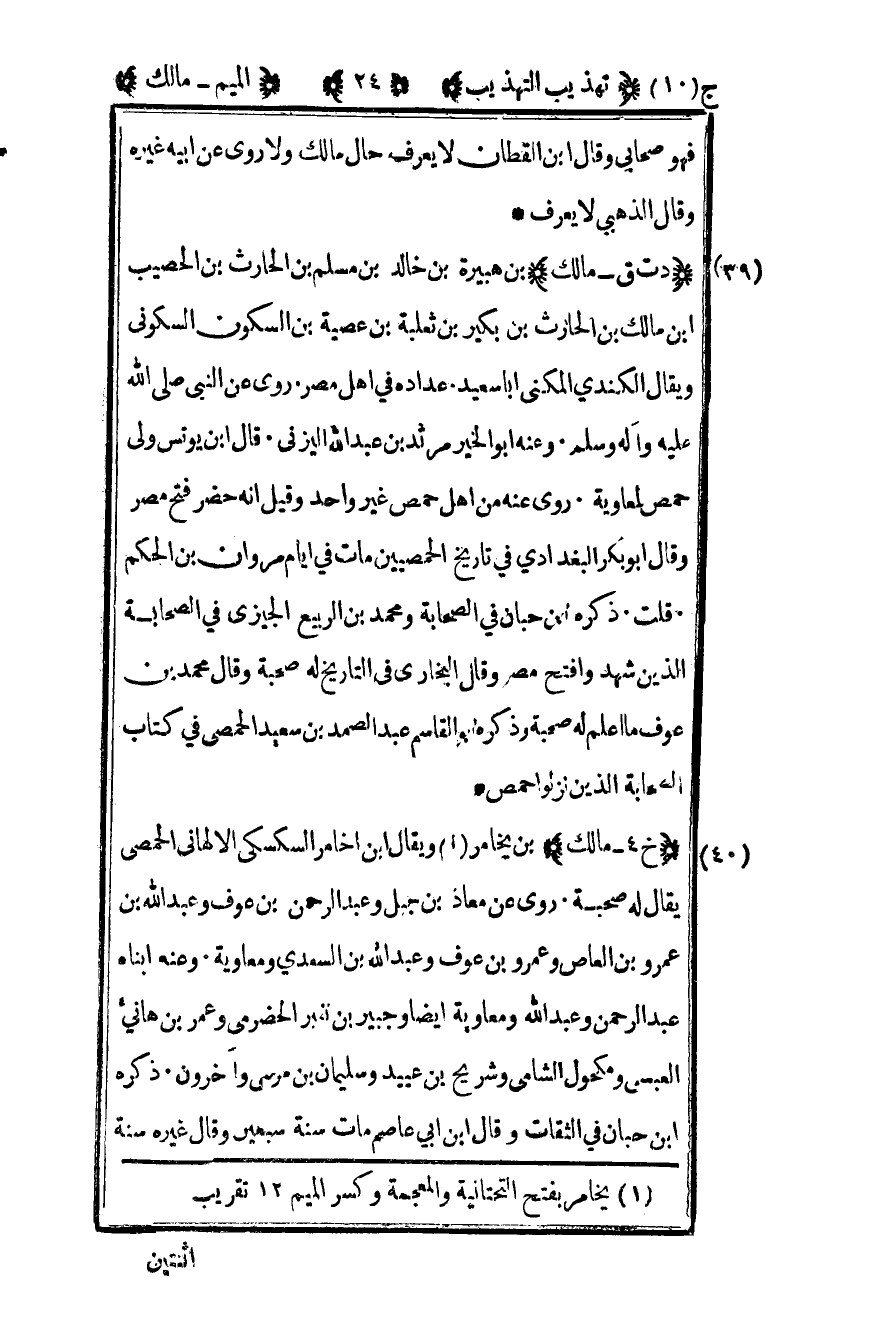 ج(١٠) ﴿ تهذيب التهذيب ﴾ ﴿ ٢٤ ﴾ ﴿ الميم ـ مالك ﴾
فهو صحابي وقال ابن القطان لا يعرف حال مالك ولا روى عن ابيه غيره
وقال الذهبي لا يعرف *
(٣٩) ﴿ دت ق ـ مالك ﴾ بن هبيرة بن خالد بن مسلم بن الحارث بن الحصيب
ابن مالك بن الحارث بن بكير بن ثعلبة بن عصية بن السكون السكونى
ويقال الكندي المكنى ابا سعيد٠ عداده في اهل مصر٠ روى عن النبى صلى الله
عليه وآله وسلم ٠ وعنه ابو الخير مرثد بن عبدالله اليزنى ٠ قال ابن يونس ولى
حمص لمعاوية ٠ روى عنه من اهل حمص غير واحد وقيل انه حضر فتح مصر
وقال ابو بكر البغدادي في تاريخ الحمصيين مات في ايام مروان بن الحكم
٠ قلت ٠ ذكره ابن حبان في الصحابة ومحمد بن الربيع الجيزى في الصحابة
الذين شهد وافتح مصر وقال البخارى فى التاريخ له صحبة وقال محمد بن
عوف ما اعلم له صحبة وذكره ابو القاسم عبد الصمد بن سعيد الحمصى في كتاب
الصحابة الذين نزلوا حمص *
(٤٠) ﴿ خ ٤ ـ مالك ﴾ بن يخامر (١) ويقال ابن اخامر السكسكى الالهانى الحمصى
يقال له صحبة ٠ روى عن معاذ بن جبل وعبد الرحمن بن عوف وعبد الله بن
عمرو بن العاص وعمرو بن عوف وعبد الله بن السعدي ومعاوية ٠ وعنه ابناه
عبد الرحمن وعبد الله ومعاوية ايضا وجبير بن نفير الحضرمى وعمر بن هانئ
العبسى ومكحول الشامى وشريح بن عبيد وسليمان بن مرسى وآخرون ٠ ذكره
ابن حبان في الثقات و قال ابن ابي عاصم مات سنة سبعين وقال غيره سنة
(١) يخامر بفتح التحتانية والمعجمة وكسر الميم ١٢ تقريب
اثنتين